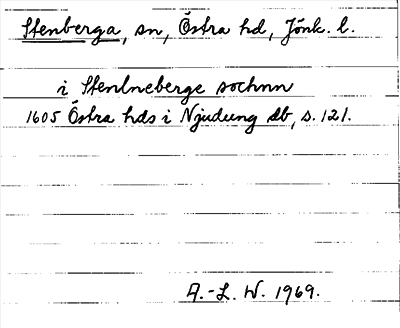 Stenberga, sn, Östra hd, Jönk. l.
i Stenlneberge sochnn
1605 Östra hds i Njudung db, s. 121.
A.-L. W. 1969.